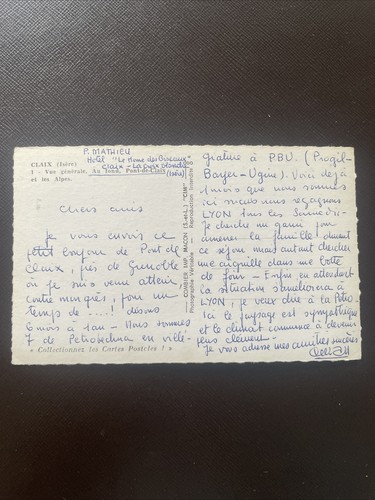 P. MATHIEU
Hotel "Le Home des Oiseaux"
Claix - La
(Isère)
CLAIX (Isère)
1 - Vue générale. Au fond, Pont-de-Claix
et les Alpes.
Chers amis
Je vous envoie ce
petit bonjour de Pont de
Claix, près de Grenoble
où je suis venu atterir,
contre mon gré, pour un
temps de ....! disons
6 mois à 1 an - Nous sommes
7 de Petrosechna en villé-
« Collectionnez les Cartes Postales ! »
COMBIER IMP. MACON (S.-et-L.) "CIM"
Photographie Véritable - Reproduction Interdite
giature à P.B.U. (Progil-
Bayer-Ugine). Voici déjà
1 mois que nous sommes
ici mais nous regagnons
LYON tous les
Je cherche un garni pour
amener la famille durant
ce séjour mais autant chercher
une aiguille dans une botte
de foin - Enfin en attendant
la situation s'améliorera à
LYON, je veux dire à la Petro.
Ici le paysage est sympathique
et le climat commence à devenir
plus clément.
Je vous adresse mes amitiés sincères